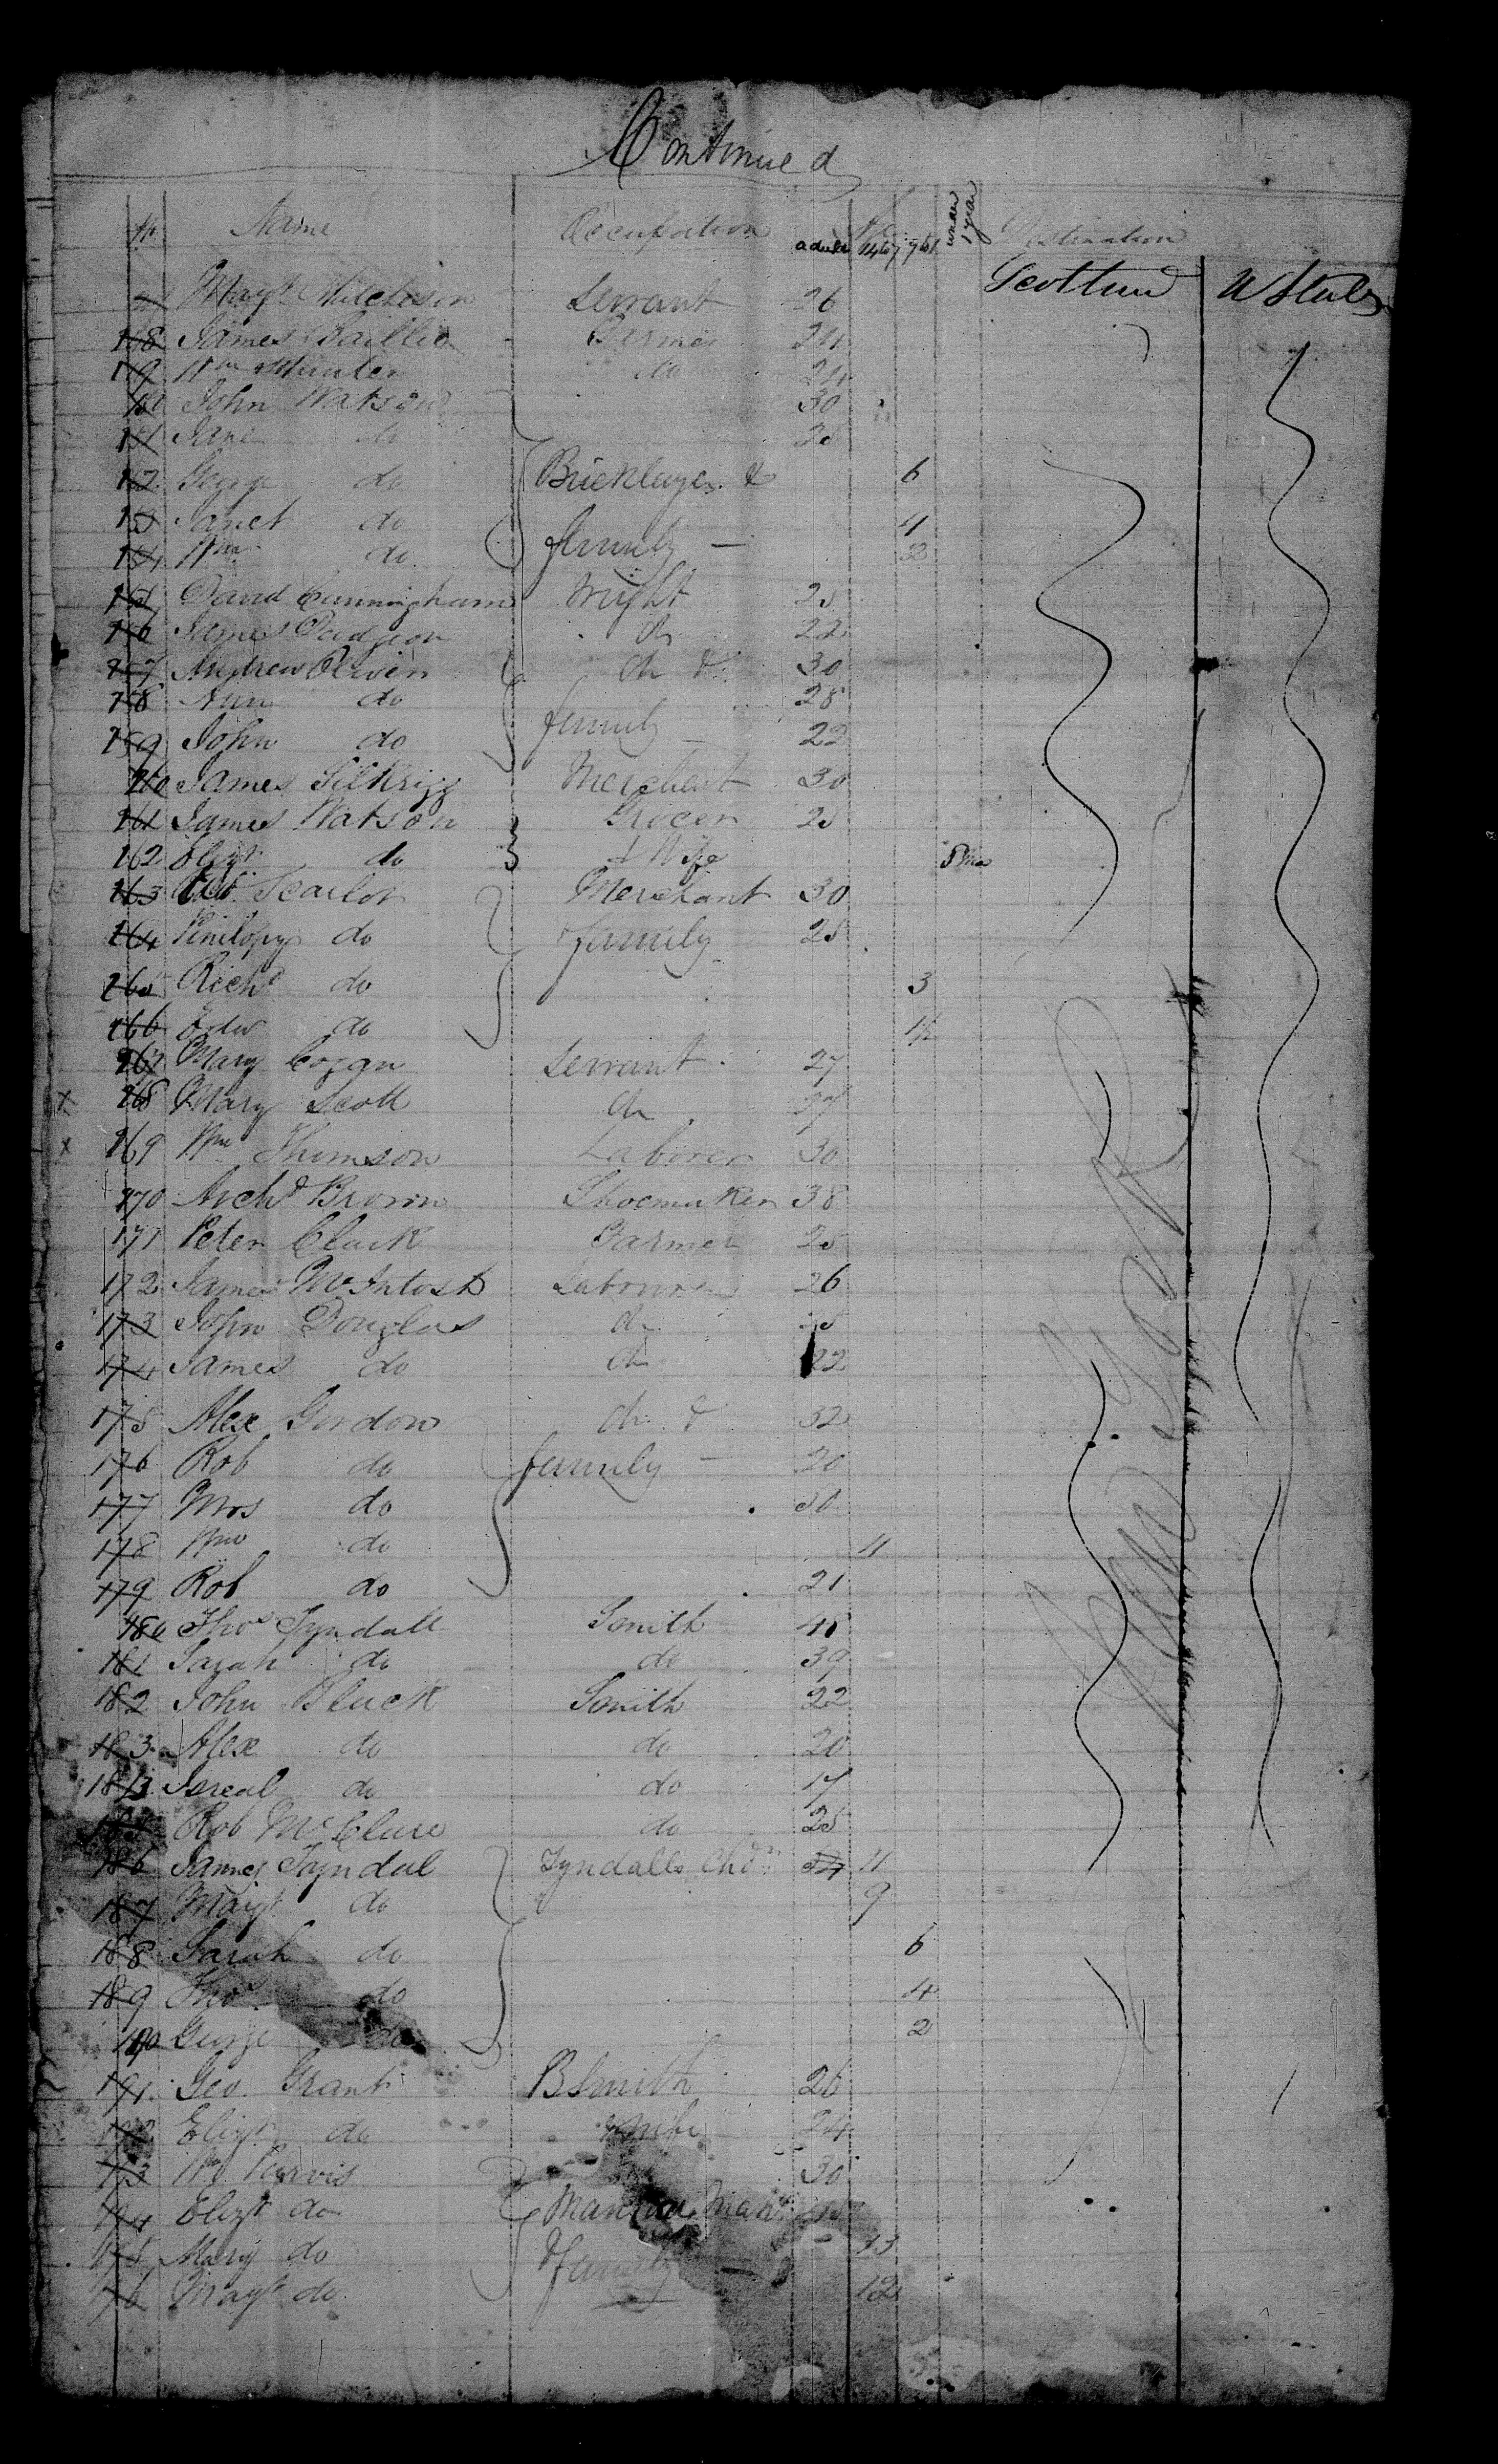 Continued
No. Name Occupation adults 14 to 7 7 to 1 under 1 year Destination
Scotland U States
Margt Mitchison Servant 26
148 James Baillie Farmer 24
149 Wm Hunter do 24
150 John Watson 30
151 Jane do 28
152 George do Bricklayer & 6
153 Janet do 4
154 Wm do family — 2
155 David Cunningham Wright 25
156 James Dudgeon do 22
157 Andrew Oliver do & 30
158 Ann do 28
159 John do family — 22
160 James Silkrigg Merchant 30
161 James Watson Grocer 25
162 Elizt do & Wife 5 Mo
163 Scarlot Merchant 30
164 Penilopy do & family 25
165 Richd do 3
166 Edw do 1½
167 Mary Cogan Servant 27
x 168 Mary Scott do 37
x 169 Wm Thomson Laborer 30
170 Archd Brown Shoemaker 38
171 Peter Clark Farmer 25
172 James McIntosh Labourer 26
173 John Douglas do 25
174 James do do 22
175 Alex Gordon do & 32
176 Rob do family — 20
177 Mrs do 50
178 Wm do 11
179 Rob do 21
180 Thos Tyndall Smith 40
181 Sarah do do 39
182 John Black Smith 22
183 Alex do do 20
184 Isreal do do 17
185 Rob McClure do 25
186 James Tyndal Tyndalls Chdn 11
187 Margt do 9
188 Sarah do 6
189 Thos do 4
190 George do 2
191 Geo. Grant B Smith 26
192 Elizt do & wife 24
193 Wm Purvis 30
194 Elizt do
195 Mary do & family — 13
196 Margt do 12
New York